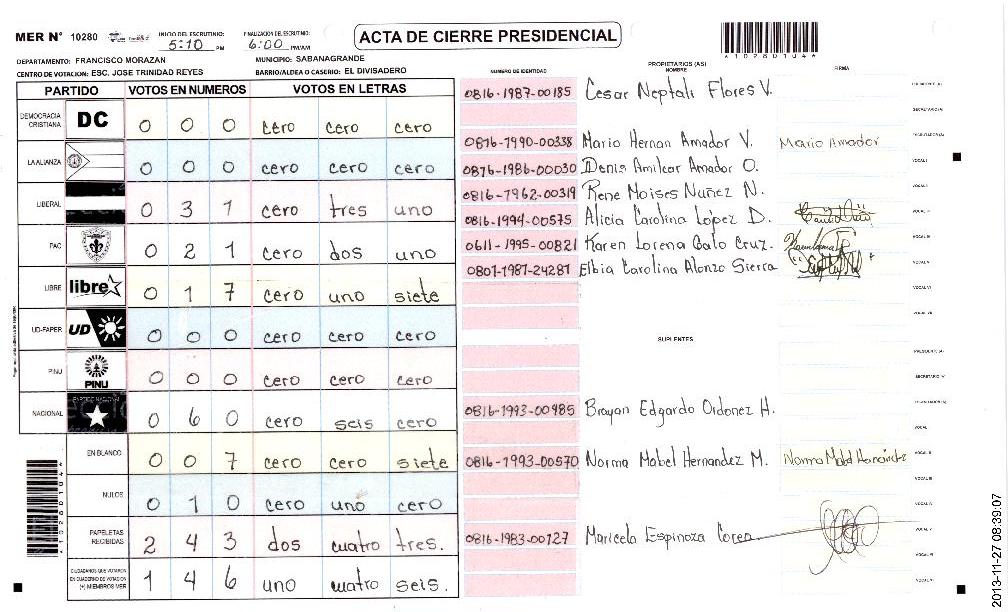 MER N° 10280
INICIO DEL ESCRUTINIO: 5:10 PM
FINALIZACION DEL ESCRUTINIO: 6:00 PM/AM
ACTA DE CIERRE PRESIDENCIAL
*10280104*
DEPARTAMENTO: FRANCISCO MORAZAN
MUNICIPIO: SABANAGRANDE
CENTRO DE VOTACION: ESC. JOSE TRINIDAD REYES
BARRIO/ALDEA O CASERIO: EL DIVISADERO
PARTIDO VOTOS EN NUMEROS VOTOS EN LETRAS
DEMOCRACIA CRISTIANA DC 0 0 0 cero cero cero
LA ALIANZA 0 0 0 cero cero cero
LIBERAL 0 3 1 cero tres uno
PAC 0 2 1 cero dos uno
LIBRE libre 0 1 7 cero uno siete
UD-FAPER UD 0 0 0 cero cero cero
PINU PINU 0 0 0 cero cero cero
NACIONAL PARTIDO NACIONAL 0 6 0 cero seis cero
EN BLANCO 0 0 7 cero cero siete
NULOS 0 1 0 cero uno cero
PAPELETAS RECIBIDAS 2 4 3 dos cuatro tres.
CIUDADANOS QUE VOTARON EN CUADERNO DE VOTACION (+) MIEMBROS MER 1 4 6 uno cuatro seis.
NUMERO DE IDENTIDAD PROPIETARIOS (AS) NOMBRE FIRMA
0816-1987-00185 Cesar Neptali Flores V.
SECRETARIO (A)
0816-1990-00338 Mario Hernan Amador V. Mario Amador
0816-1986-00030 Denis Amilcar Amador O. VOCAL I
0816-1962-00319 Rene Moises Nuñez N. VOCAL II
0816-1994-00575 Alicia Carolina López D.
0611-1995-00821 Karen Lorena Calo Cruz.
0801-1987-24281 Elbia Carolina Alonzo Sierra
VOCAL VI
VOCAL VII
SUPLENTES
PRESIDENTE (A)
SECRETARIO (A)
0816-1993-00485 Brayan Edgardo Ordonez H.
0816-1993-00570 Norma Mabel Hernandez M. Norma Mabel Hernández
0816-1983-00127 Maricela Espinoza
2013-11-27 08:39:07